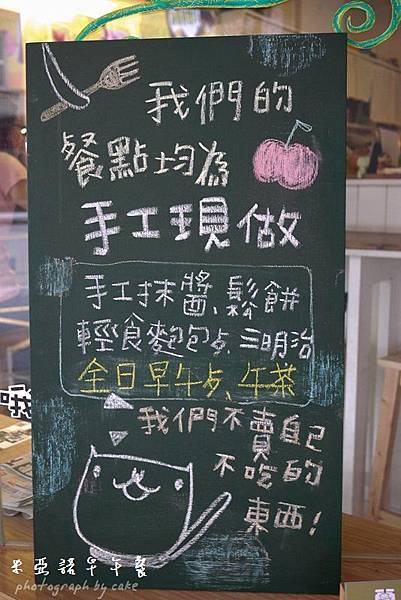 我們的
餐點均為
手工現做
手工抹醬、鬆餅
輕食麵包点、三明治
全日早午点、午茶
我們不賣自己
不吃的
東西！
米亞諾早午餐
photograph by cake